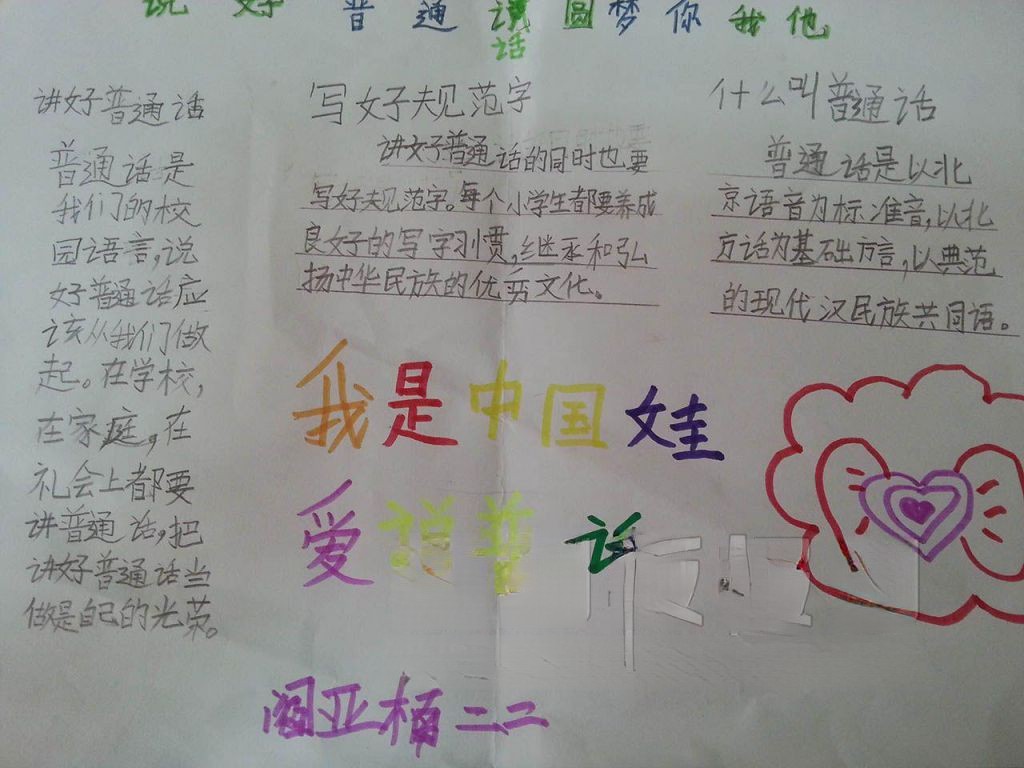 说好普通话圆梦你我他
讲好普通话
普通话是
我们的校
园语言,说
好普通话应
该从我们做
起。在学校,
在家庭,在
礼会上都要
讲普通话,把
讲好普通话当
做是自己的光荣。
写好规范字
讲好普通话的同时也要
写好规范字。每个小学生都要养成
良好的写字习惯,继承和弘
扬中华民族的优秀文化。
什么叫普通话
普通话是以北
京语音为标准音,以北
方话为基础方言,以典范
的现代汉民族共同语。
我是中国娃
爱说普 话
亚 二二